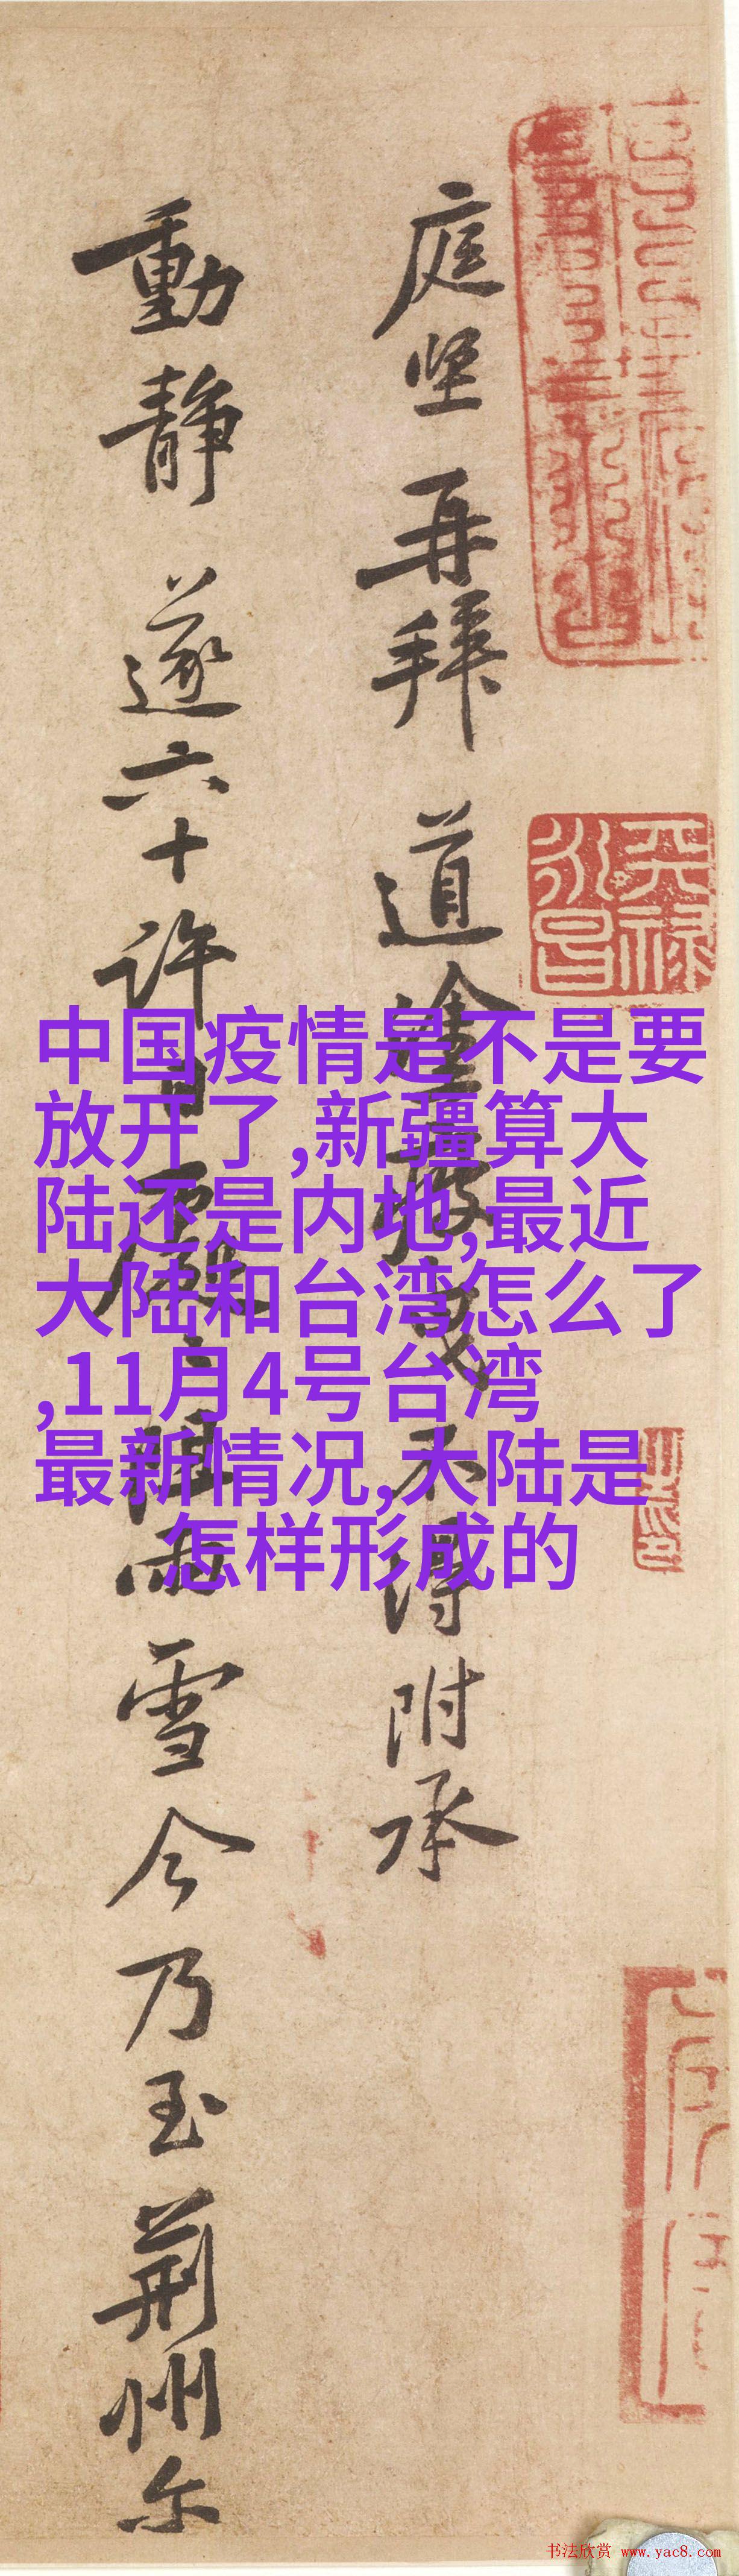 庭坚再拜道塗疲曳不得附承
動静遂六十許日殿〻陰雨雪今乃至荆州尔
天禄
永昌
中国疫情是不是要
放开了,新疆算大
陆还是内地,最近
大陆和台湾怎么了
,11月4号台湾
最新情况,大陆是
怎样形成的
书法欣赏 www.yac8.com